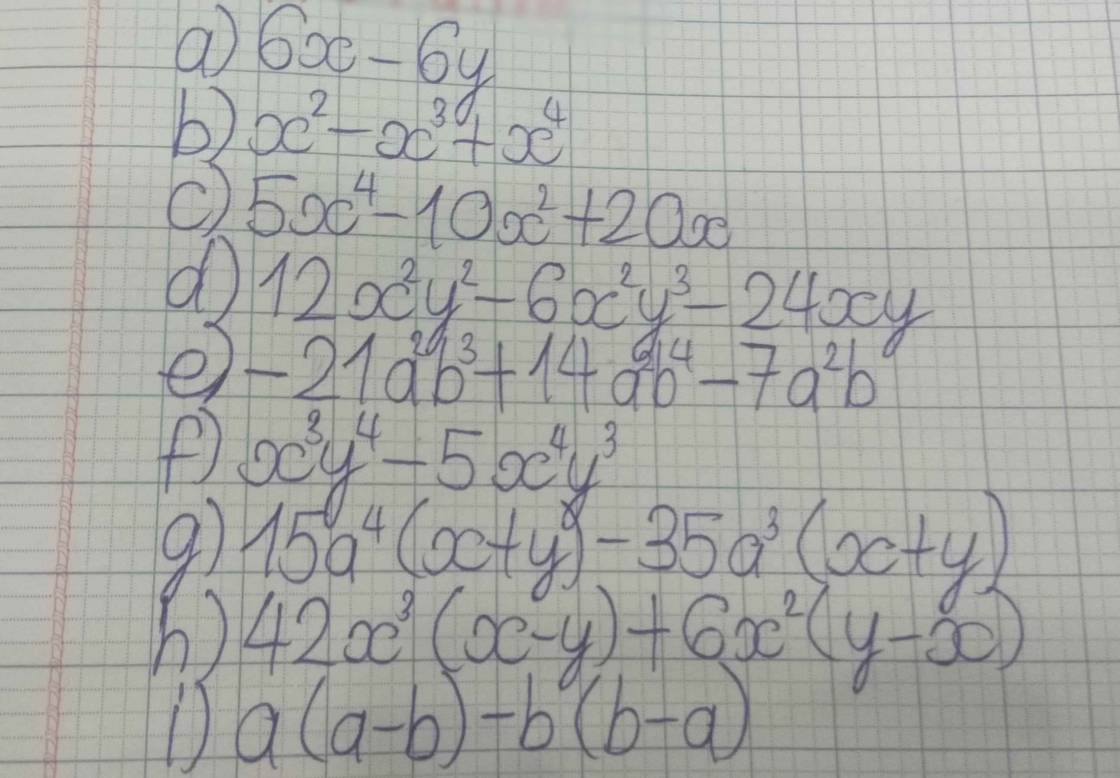 a) 6x - 6y
b) x² - x³ + x⁴
c) 5x⁴ - 10x² + 20x
d) 12x²y² - 6x²y³ - 24xy
e) -21a²b³ + 14a²b⁴ - 7a²b
f) x³y⁴ - 5x⁴y³
g) 15a⁴(x+y) - 35a³(x+y)
h) 42x³(x-y) + 6x²(y-x)
i) a(a-b) - b(b-a)